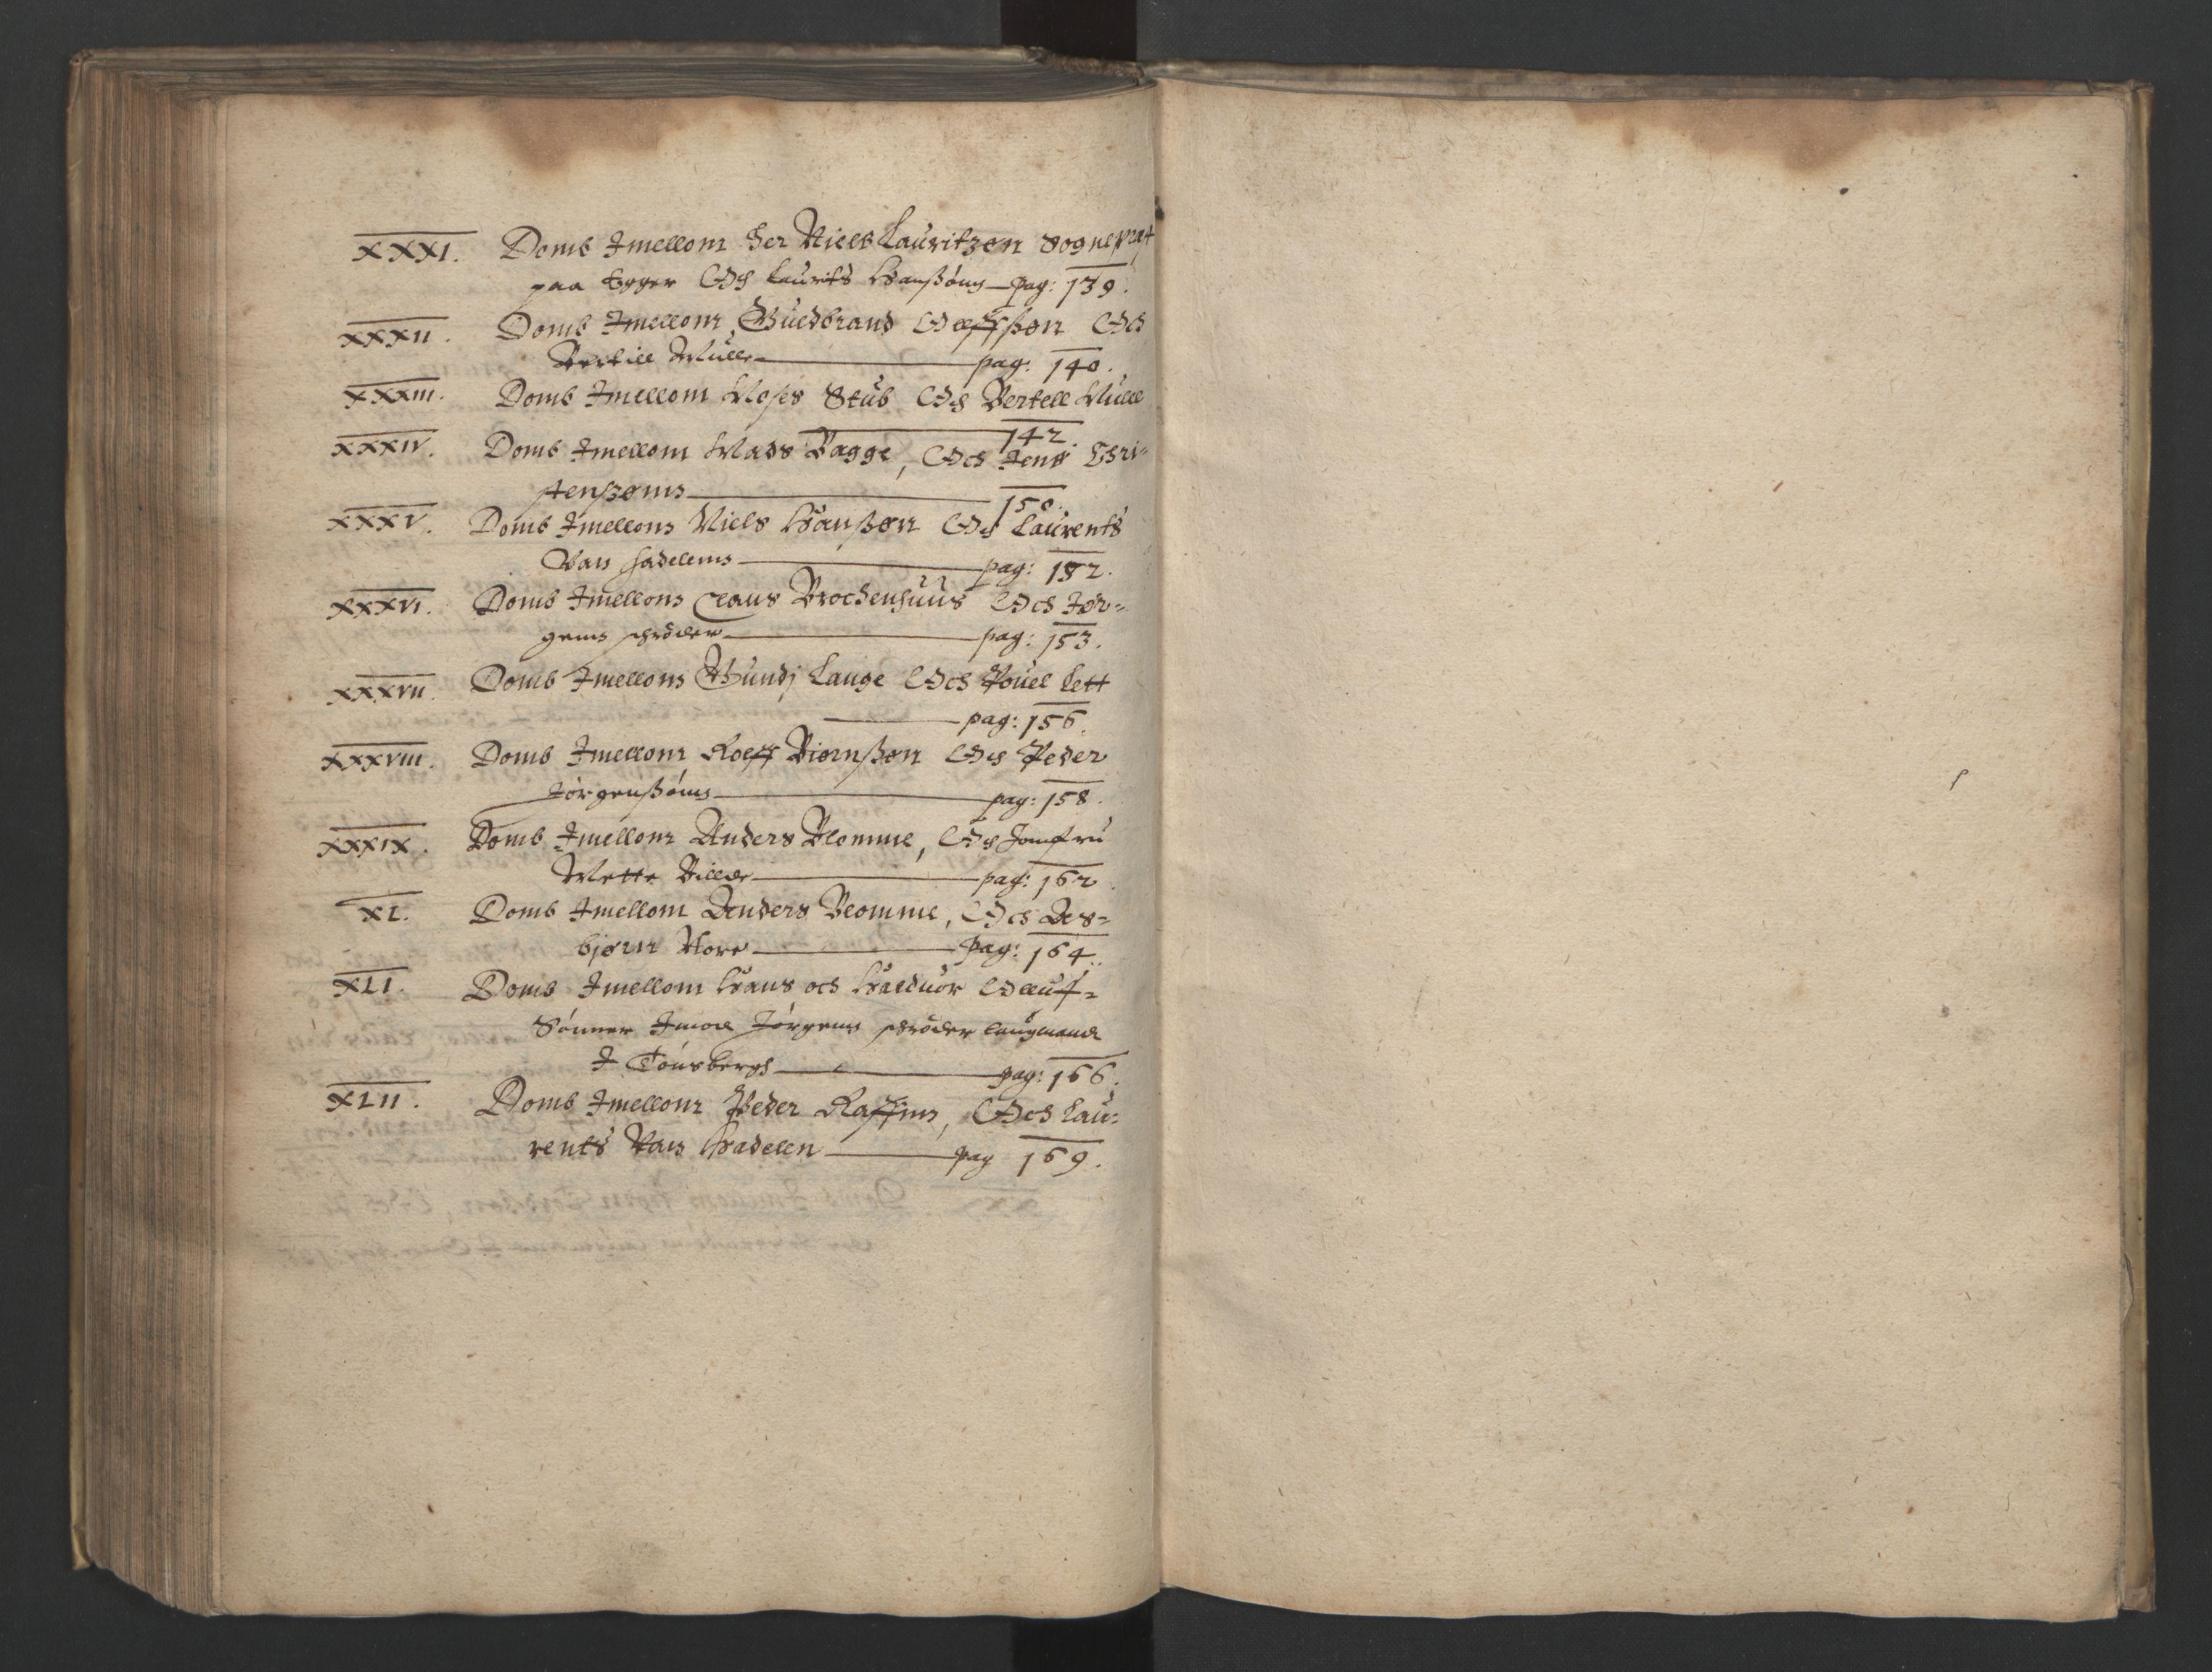 XXXI. Domb Imellom Her Niels Lauritzøn Sognepræst
paa Egger Och Laurits Hanßøn pag: 139.
XXXII. Domb Imellom Guldbrand Oelffßøn Och
Bertill Mule pag: 140.
XXXIII. Domb Imellom Moses Stub Och Bertell Mule
142.
XXXIV. Domb Imellom Mads Bagge, Och Jens Chri=
stenßøm 150.
XXXV. Domb Imellom Niels Hanßøn Och Laurents
Van Hadelem pag: 152.
XXXVI. Domb Imellom Claus Brochenhuus Och Jør=
gem schrøder pag: 153.
XXXVII. Domb Imellom Gundj Lange Och Pouel Lett
pag: 156.
XXXVIII. Domb Imellom Roeff Biørnßøn Och Peder
Jørgenßøm pag: 158.
XXXIX. Domb Imellom Anders Blomme, Och Jomfru
Mette Bilde pag: 162
XL. Domb Imellom Anders Blomme, Och Aes=
bjørn More pag: 164.
XLI. Domb Imellom Hans och Halduor Olluf=
Sønner Imod Jørgem schrøder laugmand
I Tønsbergh pag: 166.
XLII. Domb Imellom Peder Raffim, Och Lau=
rents Van Hadelen pag 169.